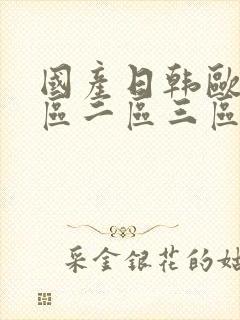 國產日韩歐
區二區三區
采金銀花的姑